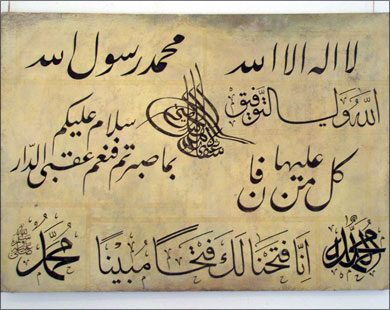 لا اله الا الله محمد رسول الله
الله ولي التوفيق
سلام عليكم
كل من عليها فان
بما صبرتم فنعم عقبى الدار
الحمد لله
إنا فتحنا لك فتحا مبينا
محمد